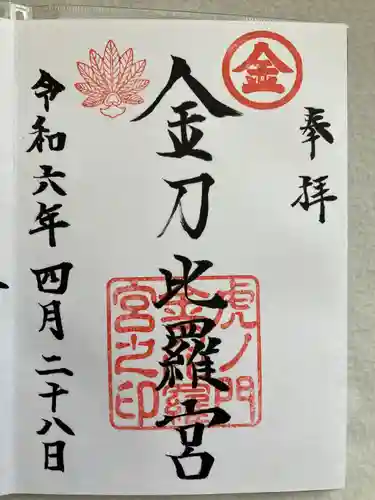 奉拝
金
金刀比羅宮
虎ノ門
金刀比羅
宮之印
令和六年四月二十八日